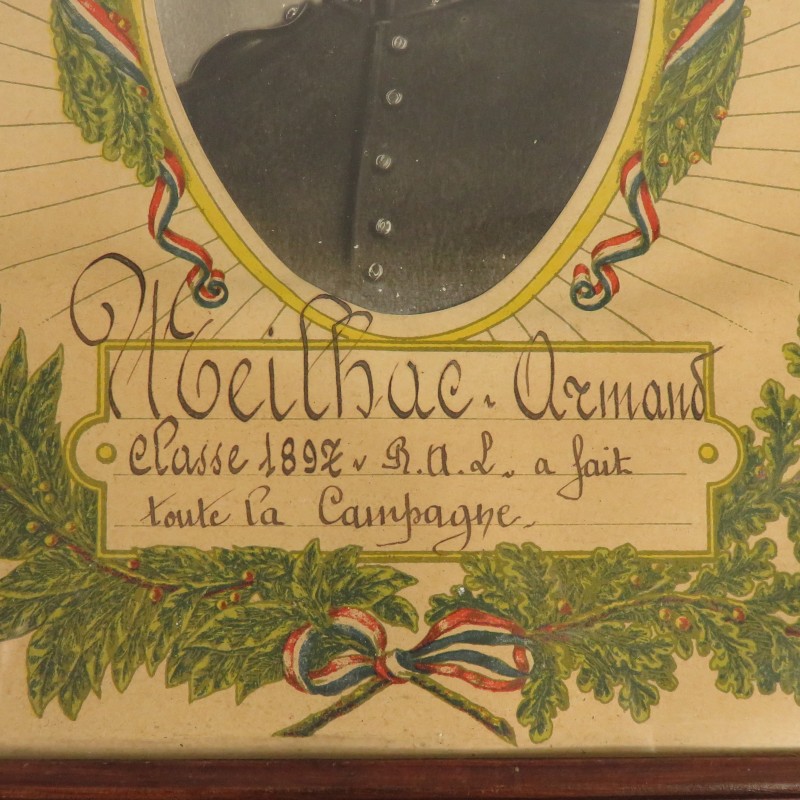 Meilhac. Armand
Classe 1897. R.A.L. a fait
toute la Campagne.